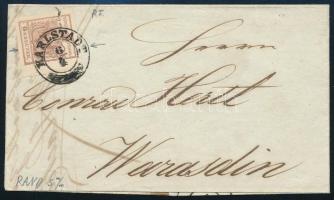 P. I.
KARLSTADT
6
4
Herrn
Conrad Herlt
Warasdin
RAND 5%